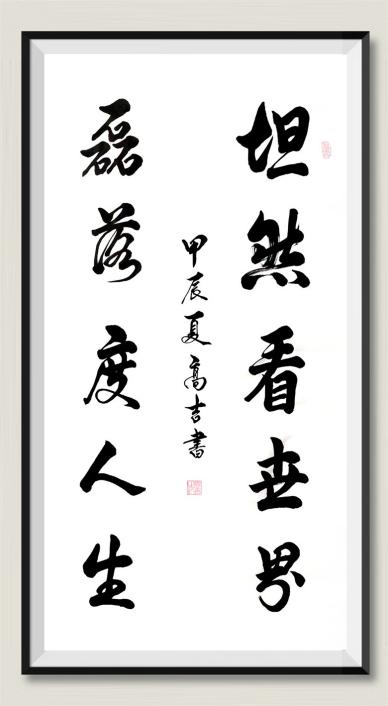 坦然看世界
磊落度人生
甲辰夏高吉書